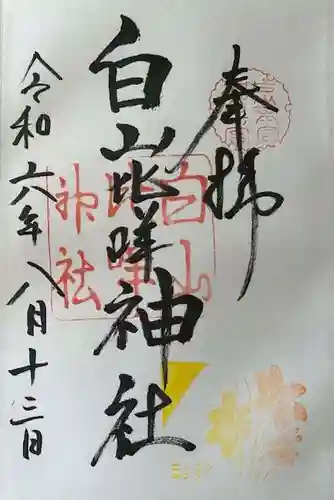 奉拝
白山比咩神社
白山比咩神社
令和六年八月十三日